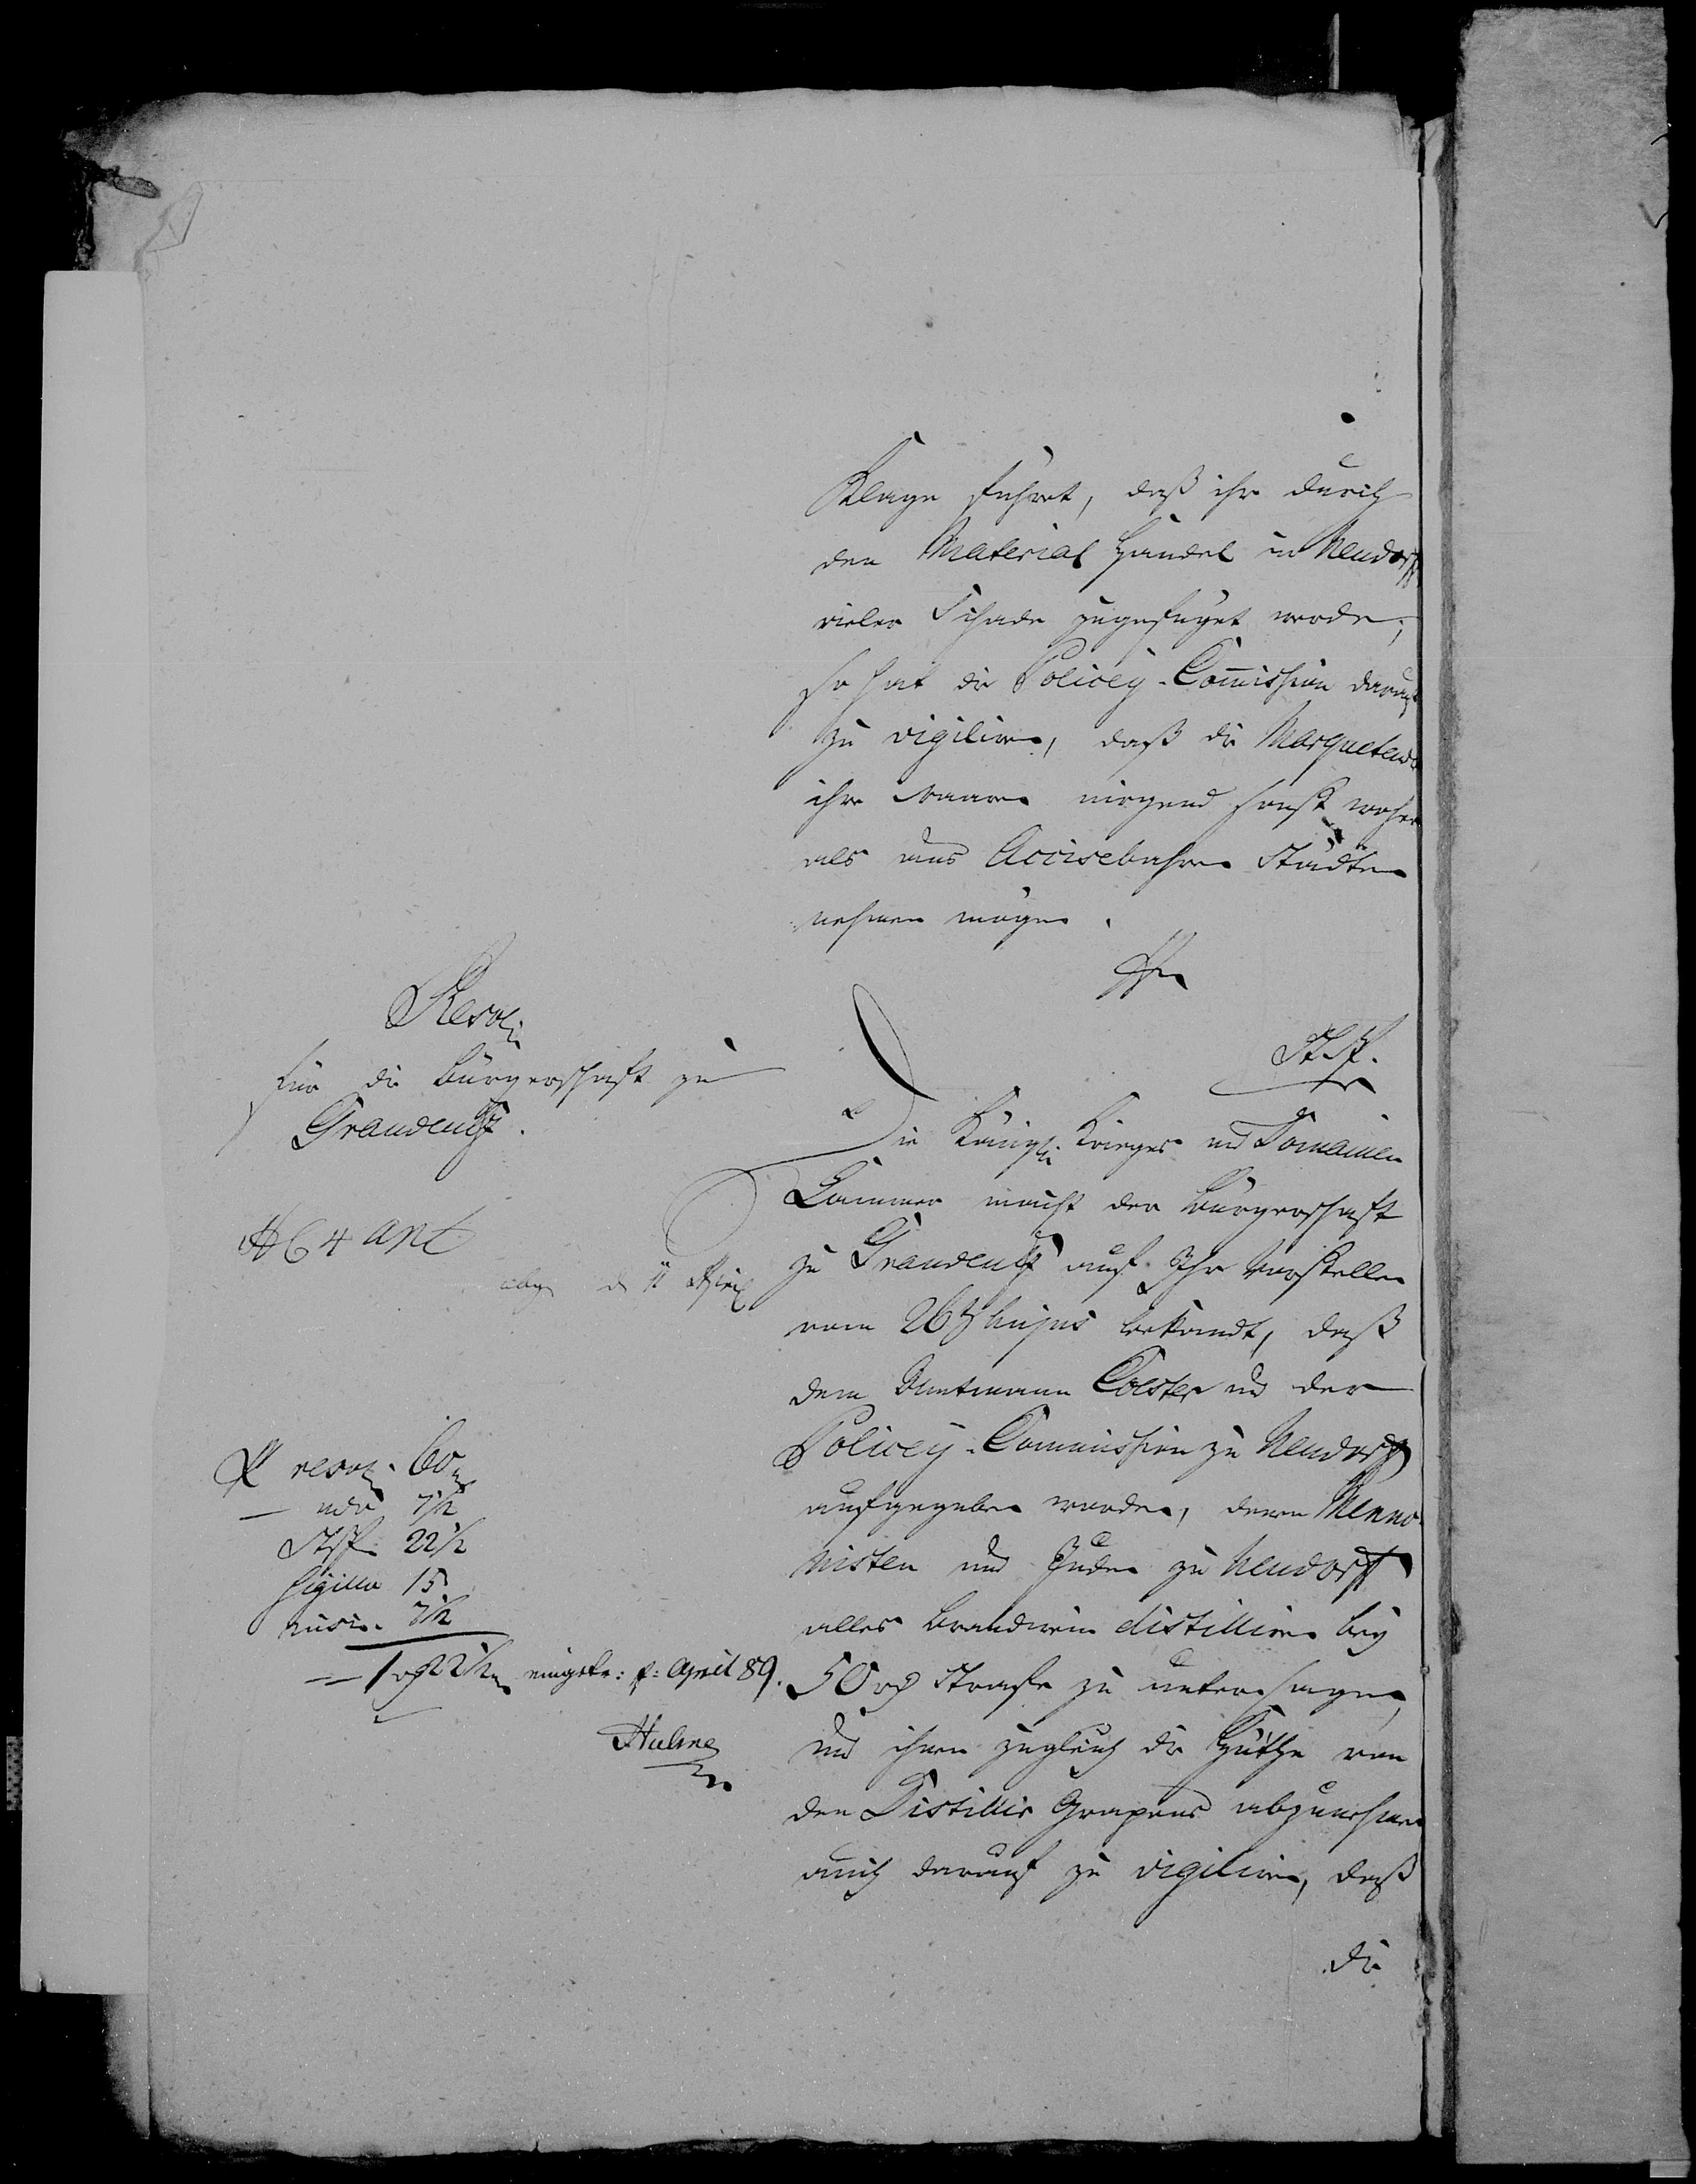 Klage führet, daß ihr durch
den Material Handel in Neudorff
vieler Schade zugefüget werde,
so hat die Policey-Com̄ission darauf
zu vigiliren, daß die Marquetender
ihre Waaren nirgend sonst woher
als aus Accisebahren Städten
nehmen mögen.
Resol:
für die Bürgerschaft zu
Graudentz.
St. P.
Die Königl: Krieges und Domainen
Cammer macht der Bürgerschaft
zu Graudentz auf Ihr Vorstellen
vom 26t hujus bekandt, daß
dem Amtmann Coester und der
Policey-Commission zu Neudorff
aufgegeben worden, denen Menno-
nisten und Juden zu Neudorff
alles Brandwein distilliren bey
50 rh Strafe zu untersagen,
und ihnen zugleich die Hüthe von
den Distillir Grapens abzunehmen
auch darauf zu vigiliren, daß
die
abg d 11 April
pl resol. 60
7 1/2
StP. 22 1/2
Sigillo 15
7 1/2
1 rh 22 1/2 eingek: p: April 89.